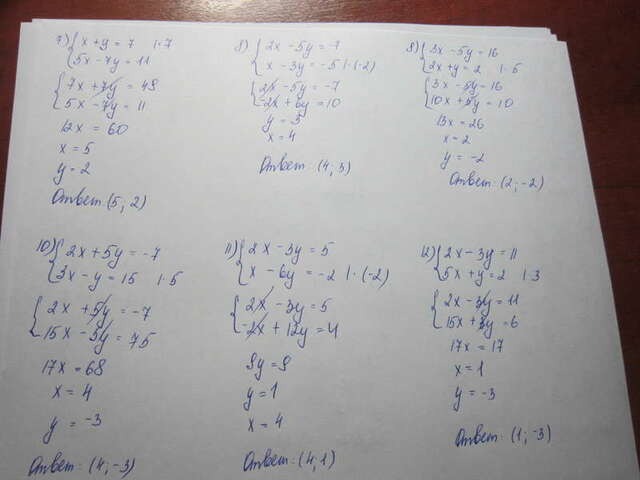 7) { x + y = 7 | · 7
5x - 7y = 11
{ 7x + 7y = 49
5x - 7y = 11
12x = 60
x = 5
y = 2
Ответ: (5; 2)
8) { 2x - 5y = -7
x - 3y = -5 | · (-2)
{ 2x - 5y = -7
-2x + 6y = 10
y = 3
x = 4
Ответ: (4; 3)
9) { 3x - 5y = 16
2x + y = 2 | · 5
{ 3x - 5y = 16
10x + 5y = 10
13x = 26
x = 2
y = -2
Ответ: (2; -2)
10) { 2x + 5y = -7
3x - y = 15 | · 5
{ 2x + 5y = -7
15x - 5y = 75
17x = 68
x = 4
y = -3
Ответ: (4; -3)
11) { 2x - 3y = 5
x - 6y = -2 | · (-2)
{ 2x - 3y = 5
-2x + 12y = 4
9y = 9
y = 1
x = 4
Ответ: (4; 1)
12) { 2x - 3y = 11
5x + y = 2 | · 3
{ 2x - 3y = 11
15x + 3y = 6
17x = 17
x = 1
y = -3
Ответ: (1; -3)